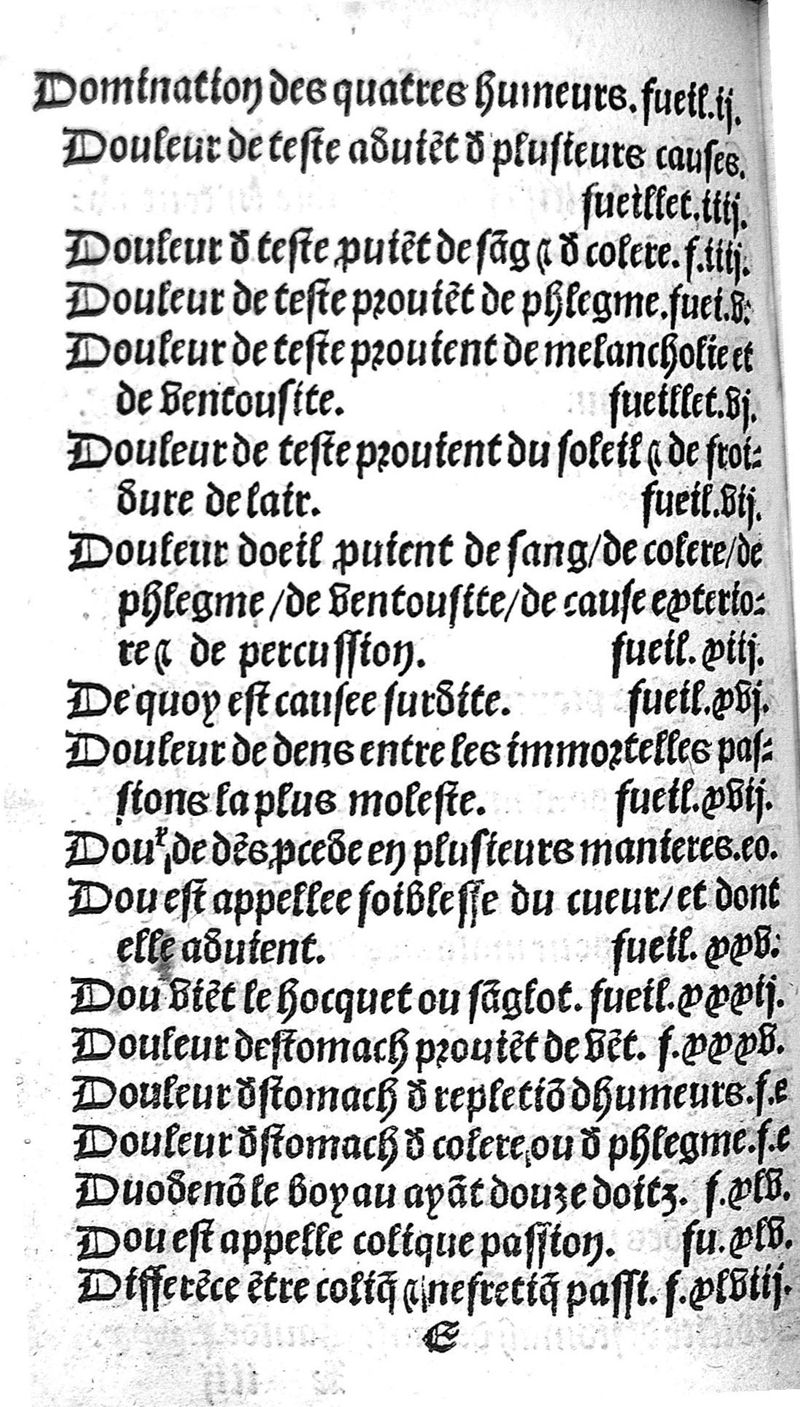 Domination des quatres humeurs. fueil.ij.
Douleur de teste aduiēt đ plusieurs causes.
fueillet.iiij.
Douleur đ teste ꝓuiēt de sāg ⁊ đ colere. f.iiij.
Douleur de teste prouiēt de phlegme. fuei.v.
Douleur de teste prouient de melancholie et
de ventousite. fueillet.vj.
Douleur de teste prouient du soleil ⁊ de froi⸗
dure de lair. fueil.vij.
Douleur doeil ꝓuient de sang/de colere/de
phlegme/de ventousite/de cause exterio⸗
re ⁊ de percussion. fueil.xiij.
De quoy est causee surdite. fueil.xvj.
Douleur de dens entre les immortelles pas⸗
sions la plus moleste. fueil.xvij.
Douʳ de dēs ꝓcede en plusieurs manieres.eo.
Dou est appellee foiblesse du cueur/et dont
elle aduient. fueil. xxv.
Dou viēt le hocquet ou sāglot. fueil.xxxij.
Douleur destomach prouiēt de vēt. f.xxxv.
Douleur đstomach đ repletiō dhumeurs.f.e
Douleur đstomach đ colere ou đ phlegme.f.e
Duodenō le boyau ayāt douze doitz. f.xlv.
Dou est appelle colique passion. fu.xlv.
Differēce ētre coliq̄ ⁊ nefretiq̄ passi. f.xlviij.
E